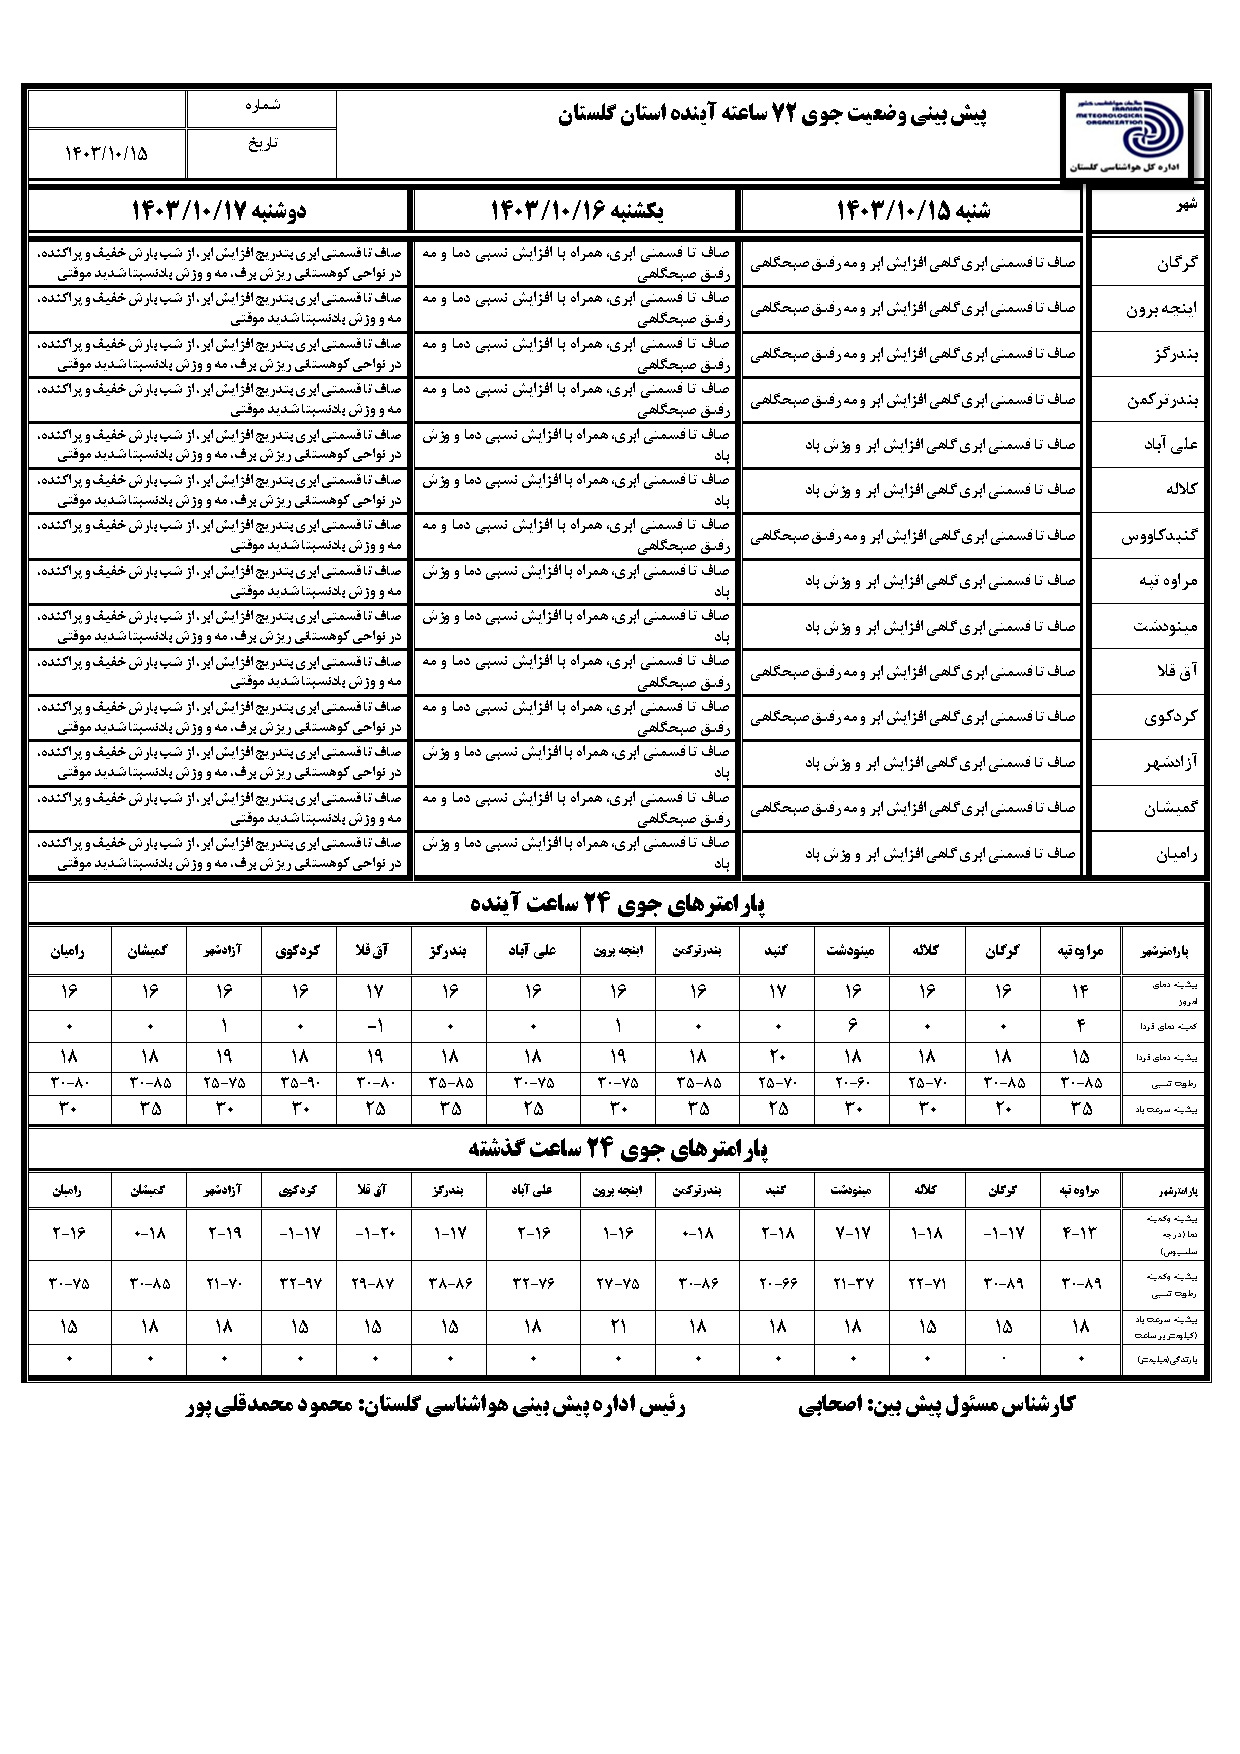 سازمان هواشناسی کشور
IRANIAN
METEOROLOGICAL
ORGANIZATION
اداره کل هواشناسی گلستان
پیش بینی وضعیت جوی ۷۲ ساعته آینده استان گلستان
شماره
تاریخ ۱۴۰۳/۱۰/۱۵
شهر شنبه ۱۴۰۳/۱۰/۱۵ یکشنبه ۱۴۰۳/۱۰/۱۶ دوشنبه ۱۴۰۳/۱۰/۱۷
گرگان صاف تا قسمتی ابری گاهی افزایش ابر و مه رقیق صبحگاهی صاف تا قسمتی ابری، همراه با افزایش نسبی دما و مه رقیق صبحگاهی صاف تا قسمتی ابری بتدریج افزایش ابر، از شب بارش خفیف و پراکنده، در نواحی کوهستانی ریزش برف، مه و وزش بادنسبتا شدید موقتی
اینچه برون صاف تا قسمتی ابری گاهی افزایش ابر و مه رقیق صبحگاهی صاف تا قسمتی ابری، همراه با افزایش نسبی دما و مه رقیق صبحگاهی صاف تا قسمتی ابری بتدریج افزایش ابر، از شب بارش خفیف و پراکنده، مه و وزش بادنسبتا شدید موقتی
بندرگز صاف تا قسمتی ابری گاهی افزایش ابر و مه رقیق صبحگاهی صاف تا قسمتی ابری، همراه با افزایش نسبی دما و مه رقیق صبحگاهی صاف تا قسمتی ابری بتدریج افزایش ابر، از شب بارش خفیف و پراکنده، در نواحی کوهستانی ریزش برف، مه و وزش بادنسبتا شدید موقتی
بندرترکمن صاف تا قسمتی ابری گاهی افزایش ابر و مه رقیق صبحگاهی صاف تا قسمتی ابری، همراه با افزایش نسبی دما و مه رقیق صبحگاهی صاف تا قسمتی ابری بتدریج افزایش ابر، از شب بارش خفیف و پراکنده، مه و وزش بادنسبتا شدید موقتی
علی آباد صاف تا قسمتی ابری گاهی افزایش ابر و وزش باد صاف تا قسمتی ابری، همراه با افزایش نسبی دما و وزش باد صاف تا قسمتی ابری بتدریج افزایش ابر، از شب بارش خفیف و پراکنده، در نواحی کوهستانی ریزش برف، مه و وزش بادنسبتا شدید موقتی
کلاله صاف تا قسمتی ابری گاهی افزایش ابر و وزش باد صاف تا قسمتی ابری، همراه با افزایش نسبی دما و وزش باد صاف تا قسمتی ابری بتدریج افزایش ابر، از شب بارش خفیف و پراکنده، در نواحی کوهستانی ریزش برف، مه و وزش بادنسبتا شدید موقتی
گنبدکاووس صاف تا قسمتی ابری گاهی افزایش ابر و مه رقیق صبحگاهی صاف تا قسمتی ابری، همراه با افزایش نسبی دما و مه رقیق صبحگاهی صاف تا قسمتی ابری بتدریج افزایش ابر، از شب بارش خفیف و پراکنده، مه و وزش بادنسبتا شدید موقتی
مراوه تپه صاف تا قسمتی ابری گاهی افزایش ابر و وزش باد صاف تا قسمتی ابری، همراه با افزایش نسبی دما و وزش باد صاف تا قسمتی ابری بتدریج افزایش ابر، از شب بارش خفیف و پراکنده، مه و وزش بادنسبتا شدید موقتی
مینودشت صاف تا قسمتی ابری گاهی افزایش ابر و وزش باد صاف تا قسمتی ابری، همراه با افزایش نسبی دما و وزش باد صاف تا قسمتی ابری بتدریج افزایش ابر، از شب بارش خفیف و پراکنده، در نواحی کوهستانی ریزش برف، مه و وزش بادنسبتا شدید موقتی
آق قلا صاف تا قسمتی ابری گاهی افزایش ابر و مه رقیق صبحگاهی صاف تا قسمتی ابری، همراه با افزایش نسبی دما و مه رقیق صبحگاهی صاف تا قسمتی ابری بتدریج افزایش ابر، از شب بارش خفیف و پراکنده، مه و وزش بادنسبتا شدید موقتی
کردکوی صاف تا قسمتی ابری گاهی افزایش ابر و مه رقیق صبحگاهی صاف تا قسمتی ابری، همراه با افزایش نسبی دما و مه رقیق صبحگاهی صاف تا قسمتی ابری بتدریج افزایش ابر، از شب بارش خفیف و پراکنده، در نواحی کوهستانی ریزش برف، مه و وزش بادنسبتا شدید موقتی
آزادشهر صاف تا قسمتی ابری گاهی افزایش ابر و وزش باد صاف تا قسمتی ابری، همراه با افزایش نسبی دما و وزش باد صاف تا قسمتی ابری بتدریج افزایش ابر، از شب بارش خفیف و پراکنده، در نواحی کوهستانی ریزش برف، مه و وزش بادنسبتا شدید موقتی
گمیشان صاف تا قسمتی ابری گاهی افزایش ابر و مه رقیق صبحگاهی صاف تا قسمتی ابری، همراه با افزایش نسبی دما و مه رقیق صبحگاهی صاف تا قسمتی ابری بتدریج افزایش ابر، از شب بارش خفیف و پراکنده، مه و وزش بادنسبتا شدید موقتی
رامیان صاف تا قسمتی ابری گاهی افزایش ابر و وزش باد صاف تا قسمتی ابری، همراه با افزایش نسبی دما و وزش باد صاف تا قسمتی ابری بتدریج افزایش ابر، از شب بارش خفیف و پراکنده، در نواحی کوهستانی ریزش برف، مه و وزش بادنسبتا شدید موقتی
پارامترهای جوی ۲۴ ساعت آینده
پارامترشهر مراوه تپه گرگان کلاله مینودشت گنبد بندرترکمن اینچه برون علی آباد بندرگز آق قلا کردکوی آزادشهر گمیشان رامیان
بیشینه دمای امروز ۱۴ ۱۶ ۱۶ ۱۶ ۱۷ ۱۶ ۱۶ ۱۶ ۱۶ ۱۷ ۱۶ ۱۶ ۱۶ ۱۶
کمینه دمای فردا ۴ ۰ ۰ ۶ ۰ ۰ ۱ ۰ ۰ -۱ ۰ ۱ ۰ ۰
بیشینه دمای فردا ۱۵ ۱۸ ۱۸ ۱۸ ۲۰ ۱۸ ۱۹ ۱۸ ۱۸ ۱۹ ۱۸ ۱۹ ۱۸ ۱۸
رطوبت نسبی ۳۰-۸۵ ۳۰-۸۵ ۲۵-۷۰ ۲۰-۶۰ ۲۵-۷۰ ۳۵-۸۵ ۳۰-۷۵ ۳۰-۷۵ ۳۵-۸۵ ۳۰-۸۰ ۳۵-۹۰ ۲۵-۷۵ ۳۰-۸۵ ۳۰-۸۰
بیشینه سرعت باد ۳۵ ۲۰ ۳۰ ۳۰ ۲۵ ۳۵ ۳۰ ۲۵ ۳۵ ۲۵ ۳۰ ۳۰ ۳۵ ۳۰
پارامترهای جوی ۲۴ ساعت گذشته
پارامترشهر مراوه تپه گرگان کلاله مینودشت گنبد بندرترکمن اینچه برون علی آباد بندرگز آق قلا کردکوی آزادشهر گمیشان رامیان
بیشینه وکمینه دما (درجه سلسیوس) ۴-۱۳ -۱-۱۷ ۱-۱۸ ۷-۱۷ ۲-۱۸ ۰-۱۸ ۱-۱۶ ۲-۱۶ ۱-۱۷ -۱-۲۰ -۱-۱۷ ۲-۱۹ ۰-۱۸ ۲-۱۶
بیشینه وکمینه رطوبت نسبی ۳۰-۸۹ ۳۰-۸۹ ۲۲-۷۱ ۲۱-۳۷ ۲۰-۶۶ ۳۰-۸۶ ۲۷-۷۵ ۳۲-۷۶ ۳۸-۸۶ ۲۹-۸۷ ۳۲-۹۷ ۲۱-۷۰ ۳۰-۸۵ ۳۰-۷۵
بیشینه سرعت باد (کیلومتر بر ساعت) ۱۸ ۱۵ ۱۵ ۱۸ ۱۸ ۱۸ ۲۱ ۱۸ ۱۵ ۱۵ ۱۵ ۱۸ ۱۸ ۱۵
بارندگی(میلیمتر) ۰ ۰ ۰ ۰ ۰ ۰ ۰ ۰ ۰ ۰ ۰ ۰ ۰ ۰
کارشناس مسئول پیش بین: اصحابی رئیس اداره پیش بینی هواشناسی گلستان: محمود محمدقلی پور